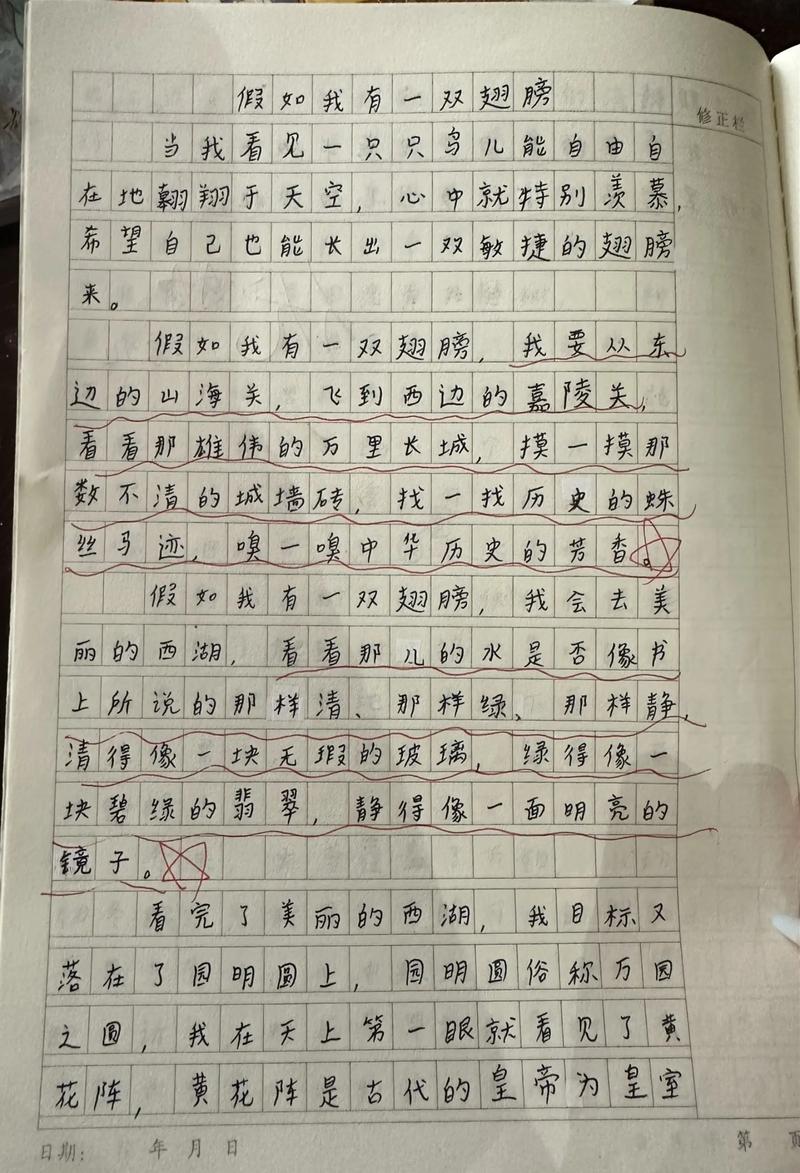 假如我有一双翅膀
修正栏
当我看见一只只鸟儿能自由自
在地翱翔于天空，心中就特别羡慕，
希望自己也能长出一双敏捷的翅膀
来。
假如我有一双翅膀，我要从东
边的山海关，飞到西边的嘉陵关，
看看那雄伟的万里长城，摸一摸那
数不清的城墙砖，找一找历史的蛛
丝马迹，嗅一嗅中华历史的芳香。
假如我有一双翅膀，我会去美
丽的西湖，看看那儿的水是否像书
上所说的那样清、那样绿、那样静，
清得像一块无瑕的玻璃，绿得像一
块碧绿的翡翠，静得像一面明亮的
镜子。
看完了美丽的西湖，我目标又
落在了园明圆上，园明圆俗称万园
之圆，我在天上第一眼就看见了黄
花阵，黄花阵是古代的皇帝为皇室
日期： 年 月 日 第 页